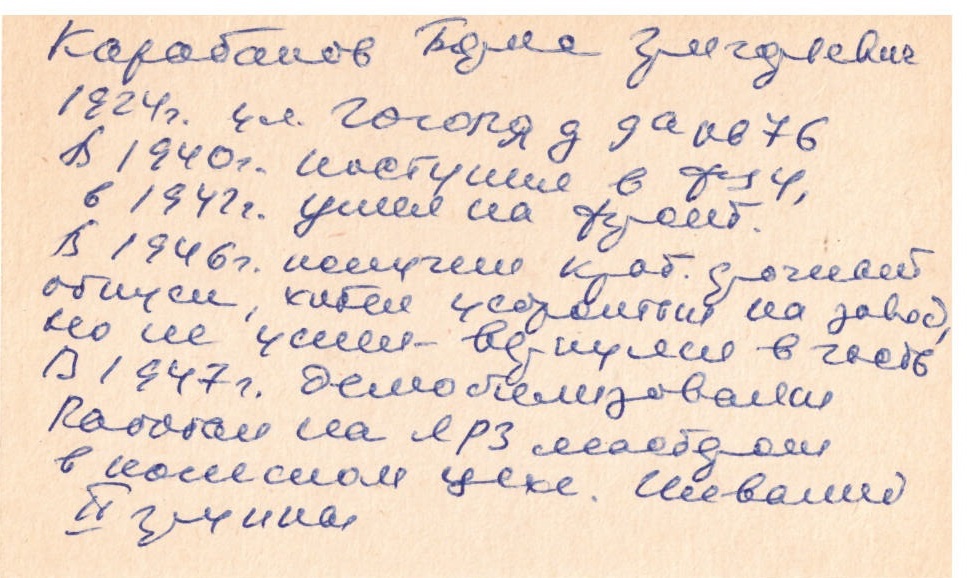 Карабанов
1924г. ул. Гоголя д 9а кв 76
В 1940г. поступил в ФЗУ,
в 1942г. ушел на фронт.
В 1946г. получил краt. срочный
отпуск, хотел устроиться на завод,
но не успел - вернули в часть
В 1947г. демобилизовали
Работал на ЛРЗ мастером
в колесном цехе. Инвалид
II группы